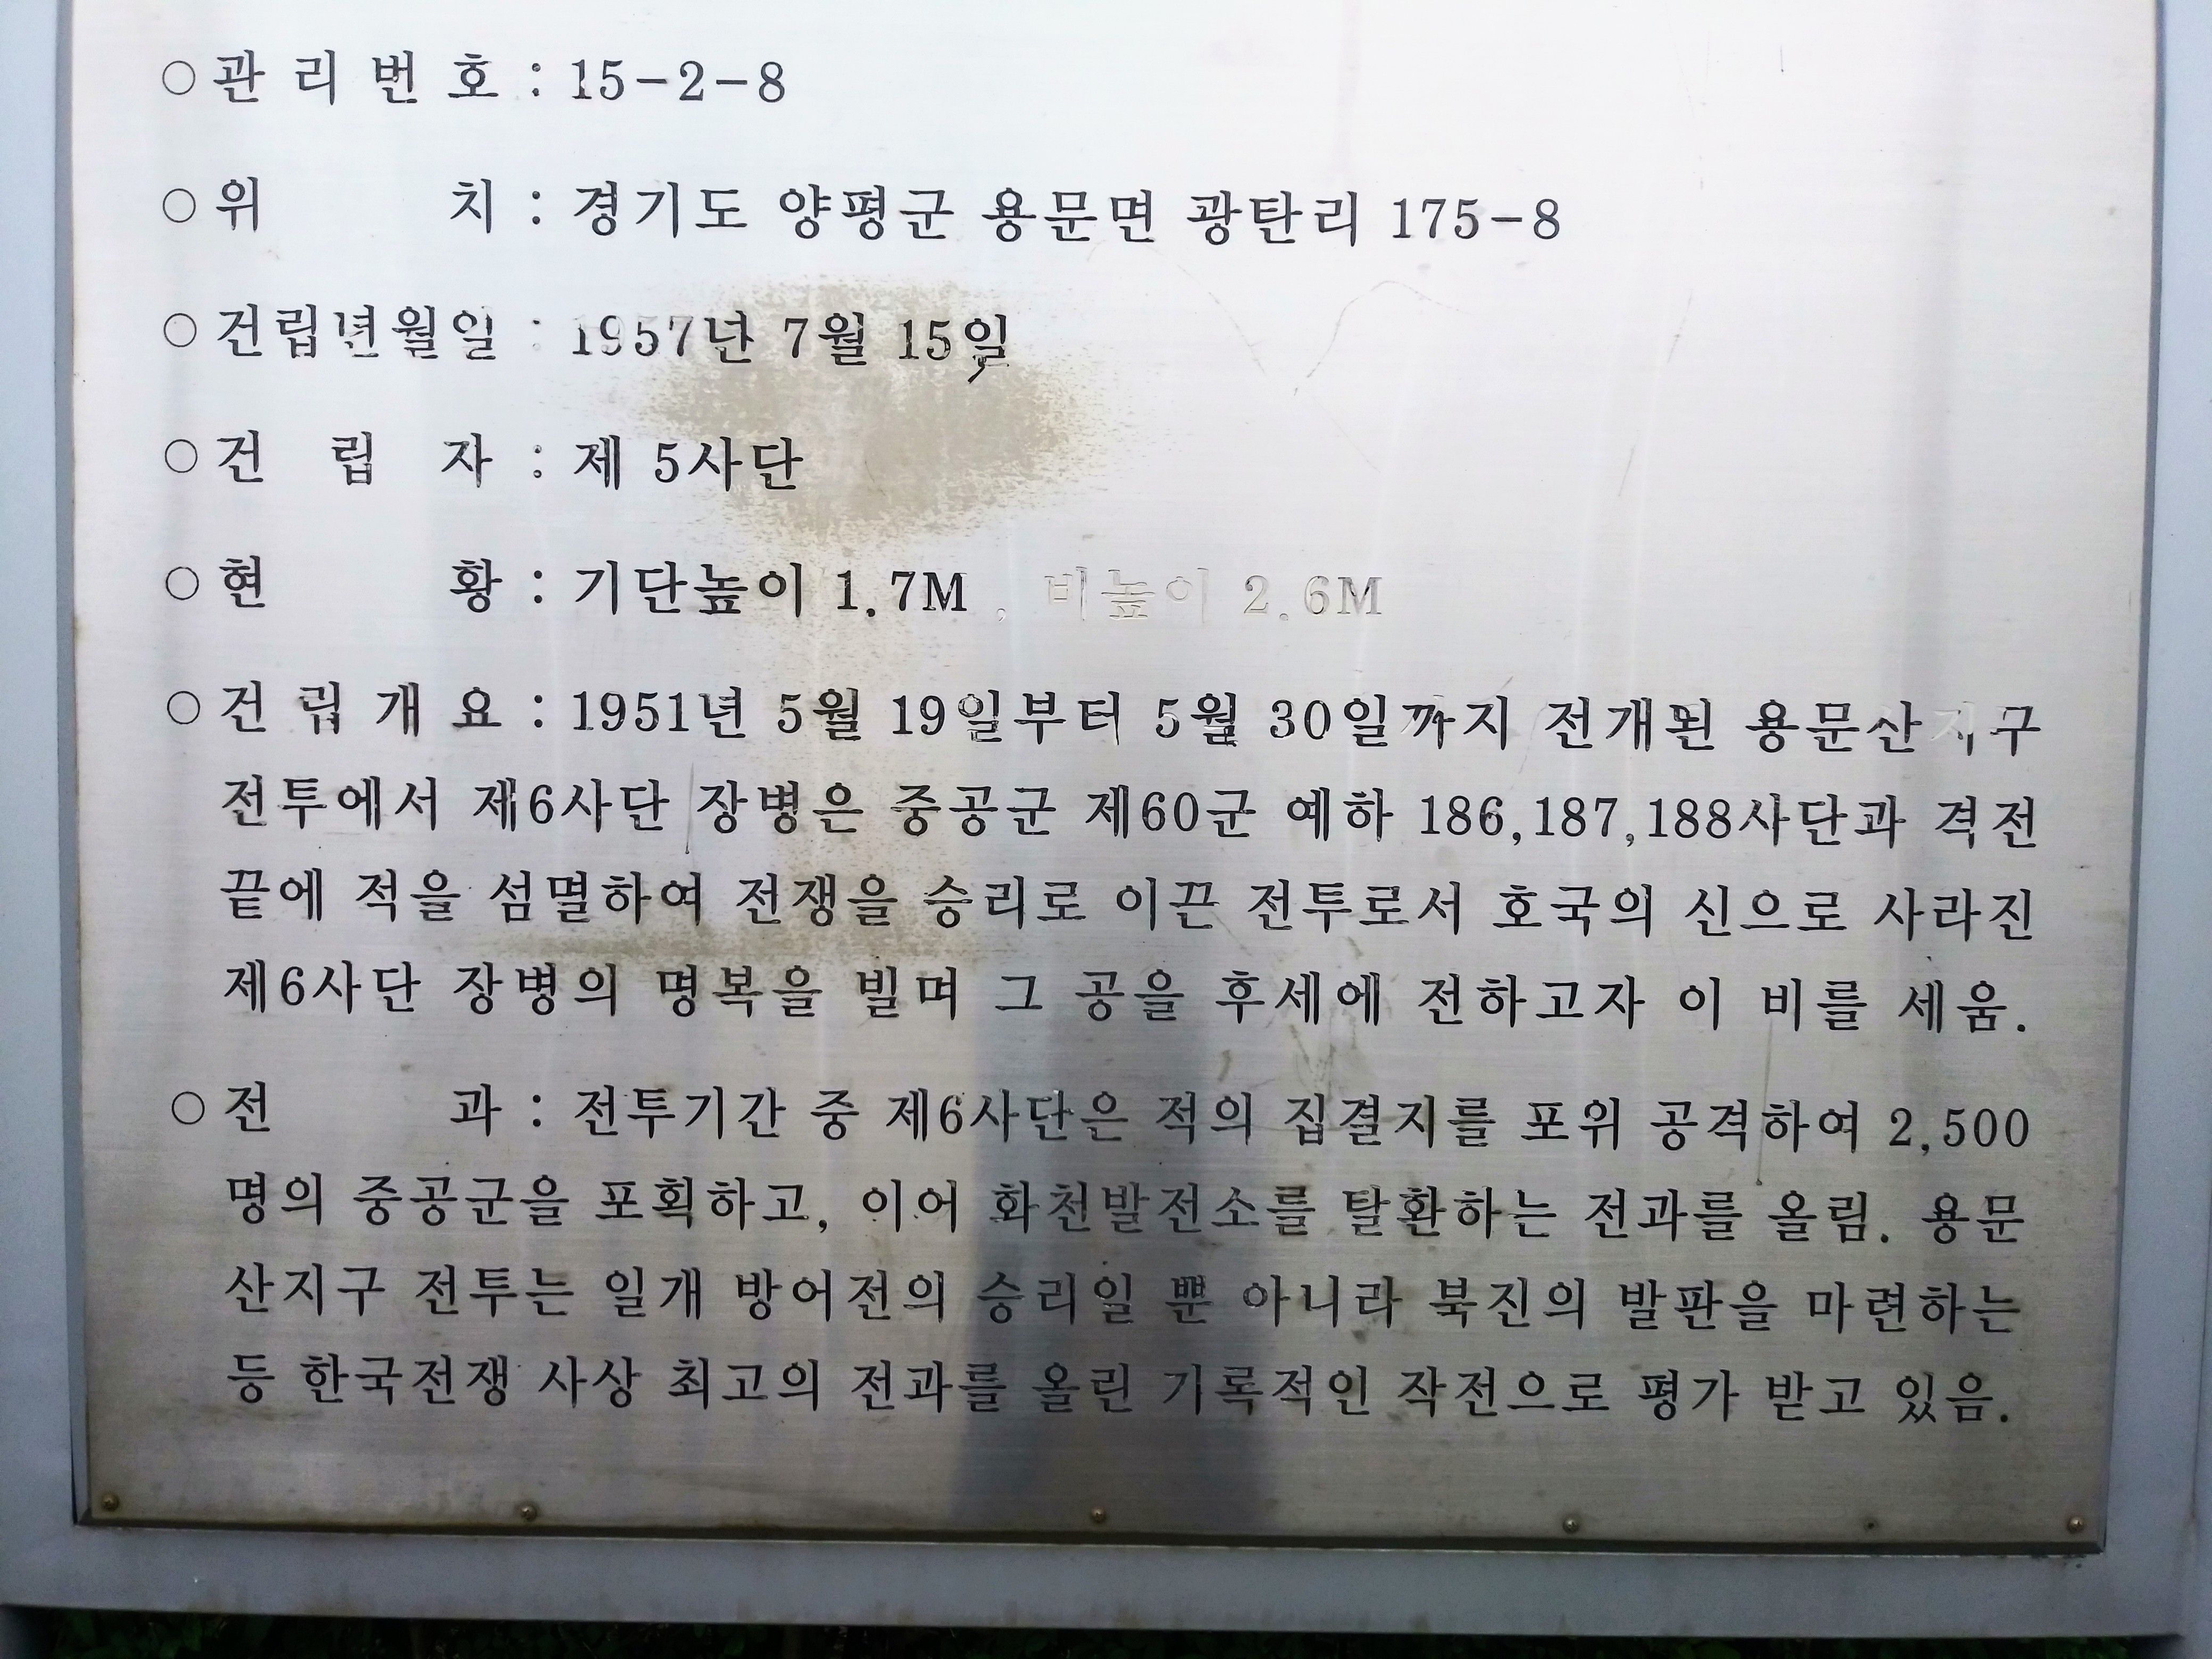 ○ 관 리 번 호 : 15-2-8
○ 위 치 : 경기도 양평군 용문면 광탄리 175-8
○ 건립년월일 : 1957년 7월 15일
○ 건 립 자 : 제 5사단
○ 현 황 : 기단높이 1.7M , 비높이 2.6M
○ 건 립 개 요 : 1951년 5월 19일부터 5월 30일까지 전개된 용문산지구
전투에서 제6사단 장병은 중공군 제60군 예하 186,187,188사단과 격전
끝에 적을 섬멸하여 전쟁을 승리로 이끈 전투로서 호국의 신으로 사라진
제6사단 장병의 명복을 빌며 그 공을 후세에 전하고자 이 비를 세움.
○ 전 과 : 전투기간 중 제6사단은 적의 집결지를 포위 공격하여 2,500
명의 중공군을 포획하고, 이어 화천발전소를 탈환하는 전과를 올림. 용문
산지구 전투는 일개 방어전의 승리일 뿐 아니라 북진의 발판을 마련하는
등 한국전쟁 사상 최고의 전과를 올린 기록적인 작전으로 평가 받고 있음.